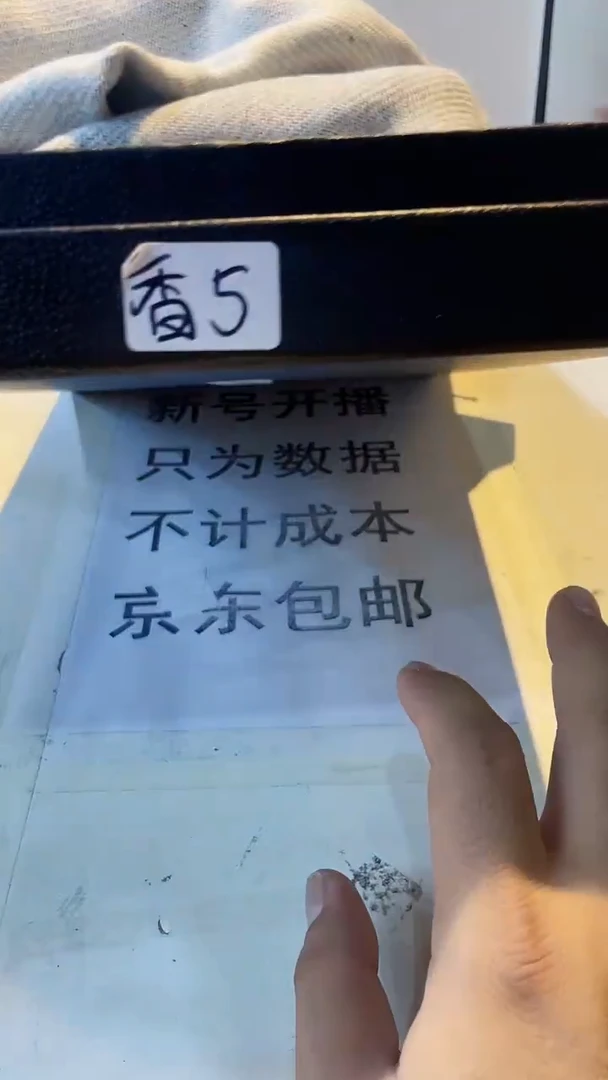 香5
新号开播
只为数据
不计成本
京东包邮